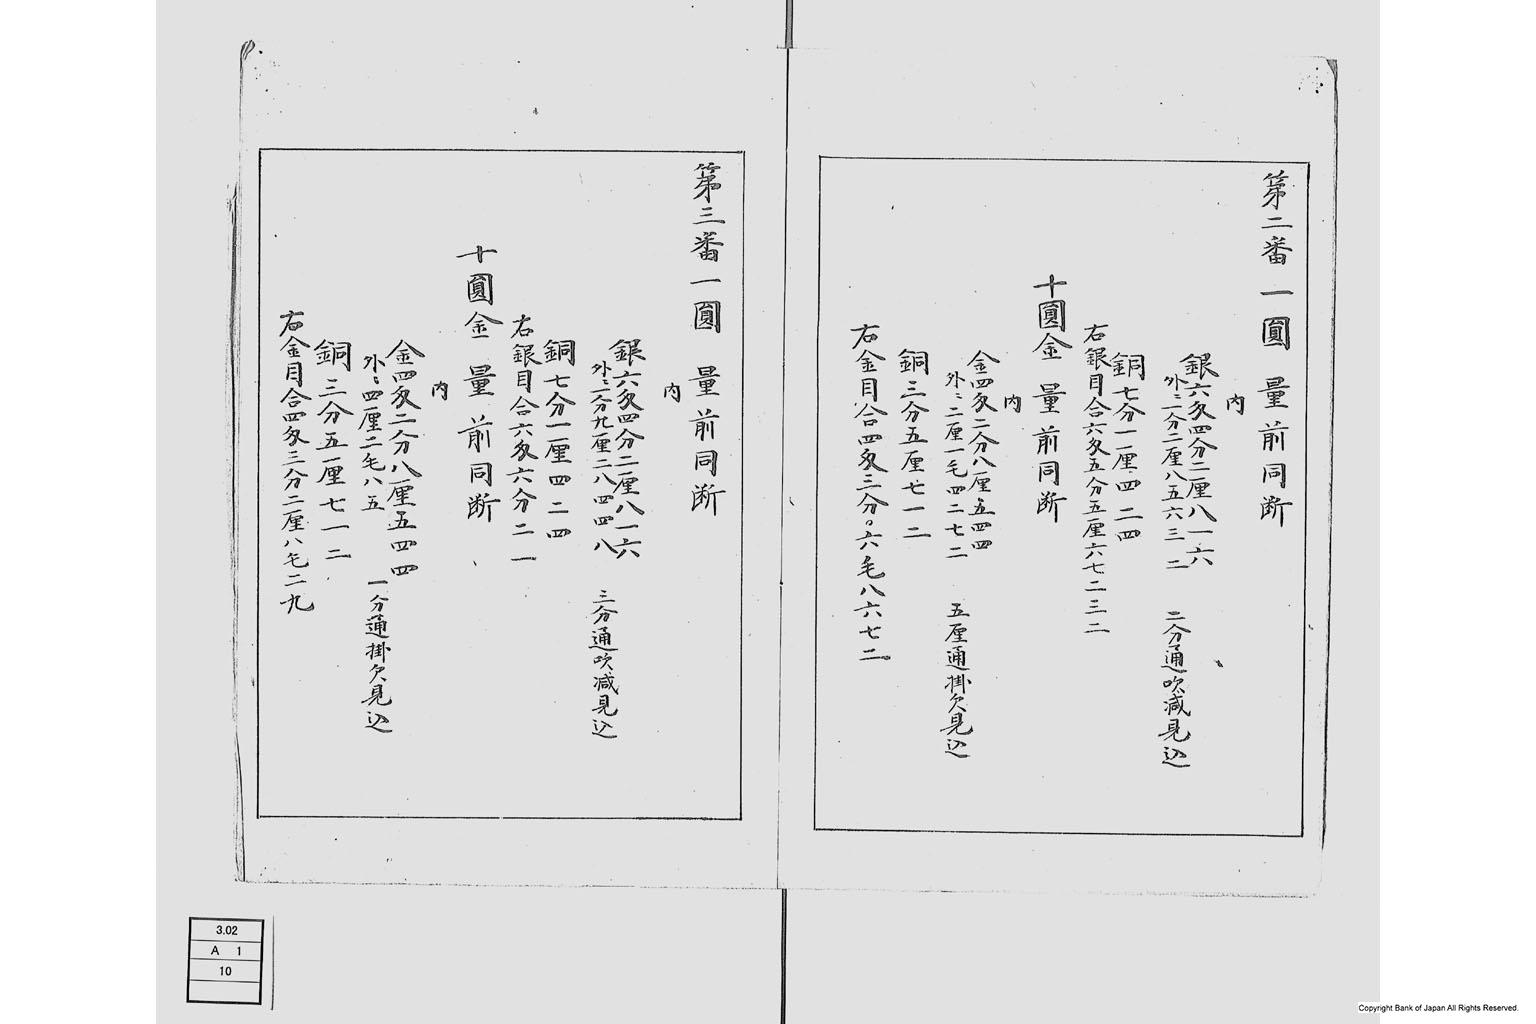 第二番一圓　量前同断
内
銀六匁四分二厘八一六
外ニ一分二厘八五六三二　二分通吹減見込
銅七分一厘四二四
右銀目合六匁五分五厘六七二三二
十圓金　量前同断
内
金四匁二分八厘五四四
外ニ二厘一毛四二七二　五厘通掛欠見込
銅三分五厘七一二
右金目合四匁三分〇六毛八六七二
第三番一圓　量前同断
内
銀六匁四分二厘八一六
外ニ一分九厘二八四四八　三分通吹減見込
銅七分一厘四二四
右銀目合六匁六分二一
十圓金　量前同断
内
金四匁二分八厘五四四
外ニ四厘二毛八五　一分通掛欠見込
銅三分五厘七一二
右金目合四匁三分二厘八毛二九
3.02
A 1
10
Copyright Bank of Japan All Rights Reserved.